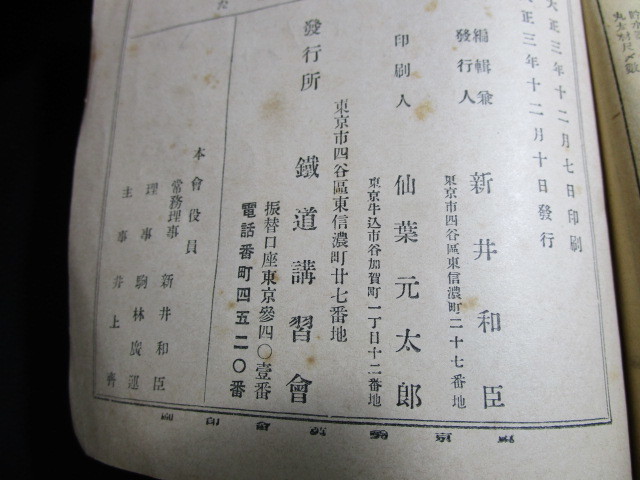 大正三年十二月七日印刷
大正三年十二月十日發行
編輯兼
發行人
新井和臣
東京市四谷區東信濃町二十七番地
印刷人
仙葉元太郎
東京牛込市谷加賀町一丁目十二番地
發行所
東京市四谷區東信濃町廿七番地
鐵道講習會
振替口座東京參四〇壹番
電話番町四五二〇番
本會役員
常務理事 新井和臣
理事 駒林廣運
主事 井上齊